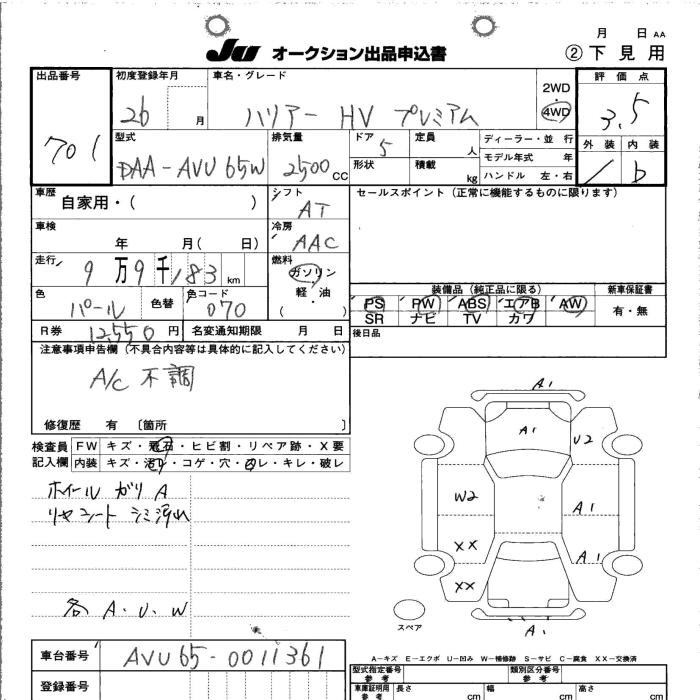 月 日 AA
JU オークション出品申込書 ② 下見用
出品番号 初度登録年月 車名・グレード 2WD 評価点
701 26 月 ハリアー HV プレミアム 4WD 3.5
型式 排気量 ドア 定員 ディーラー・並 行 外装 内装
DAA-AVU65W 2500 CC 5 人 モデル年式 年 / b
形状 積載 kg ハンドル 左・右
車歴 自家用・( ) シフト AT セールスポイント (正常に機能するものに限ります)
車検 年 月( 日) 冷房 AAC
走行 9万9千183 km 燃料 ガソリン
軽・油
( )
色 パール 色替 色コード 070
装備品 (純正品に限る) 新車保証書
PS PW ABS エアB AW 有・無
SR ナビ TV カワ
R券 12,550 円 名変通知期限 月 日 後日品
注意事項申告欄 (不具合内容等は具体的に記入してください)
A/C 不調
修復歴 有 〔箇所 〕
検査員 FW キズ・飛石・ヒビ割・リペア跡・X要
記入欄 内装 キズ・汚れ・コゲ・穴・スレ・キレ・破レ
ホイール ガリ A
リヤシート シミ汚れ
各 A.U.W
A1
A1 U2
W2 A1
XX A1
XX
A1
スペア
A-キズ E-エクボ U-凹み W-補修跡 S-サビ C-腐食 XX-交換済
車台番号 AVU65-0011361
型式指定番号 参考 類別区分番号 参考
登録番号 車庫証明用 参考 長さ 幅 高さ